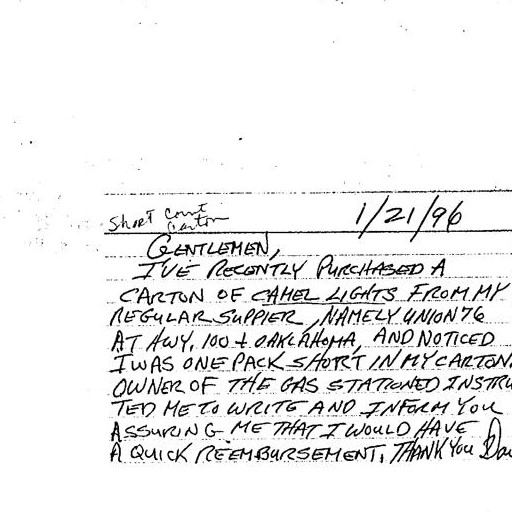 Short Count
Carton
1/21/96
GENTLEMEN,
I'VE RECENTLY PURCHASED A
CARTON OF CAMEL LIGHTS FROM MY
REGULAR SUPPIER, NAMELY UNION 76
AT HWY. 100 + OAKLAHOMA, AND NOTICED
I WAS ONE PACK SHORT IN MY CARTON.
OWNER OF THE GAS STATIONED INSTRU
TED ME TO WRITE AND INFORM YOU
ASSURING ME THAT I WOULD HAVE
A QUICK REEMBURSEMENT. THANK YOU